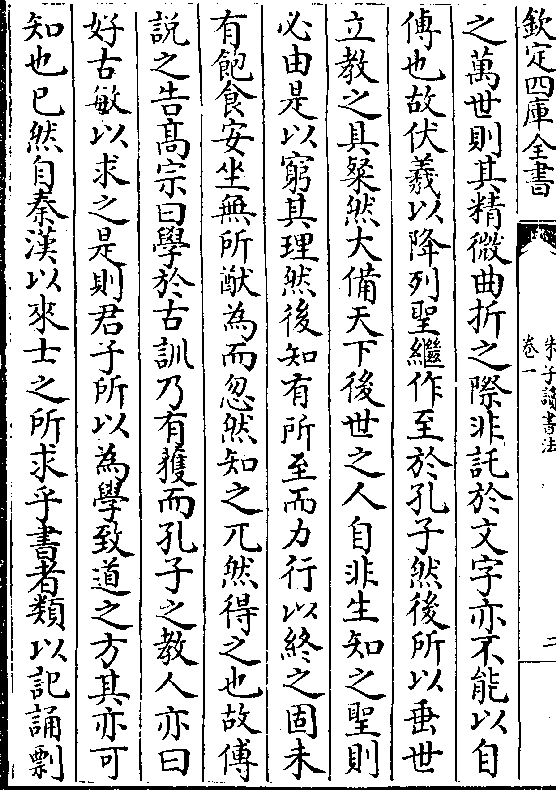 欽定四庫全書
朱子讀書法
卷一
二
之萬世則其精微曲折之際非託於文字亦不能以自
傳也故伏羲以降列聖繼作至於孔子然後所以垂世
立教之具粲然大備天下後世之人自非生知之聖則
必由是以窮其理然後知有所至而力行以終之固未
有飽食安坐無所猷為而忽然知之兀然得之也故傅
說之告髙宗曰學於古訓乃有獲而孔子之教人亦曰
好古敏以求之是則君子所以為學致道之方其亦可
知也已然自秦漢以來士之所求乎書者類以記誦剽